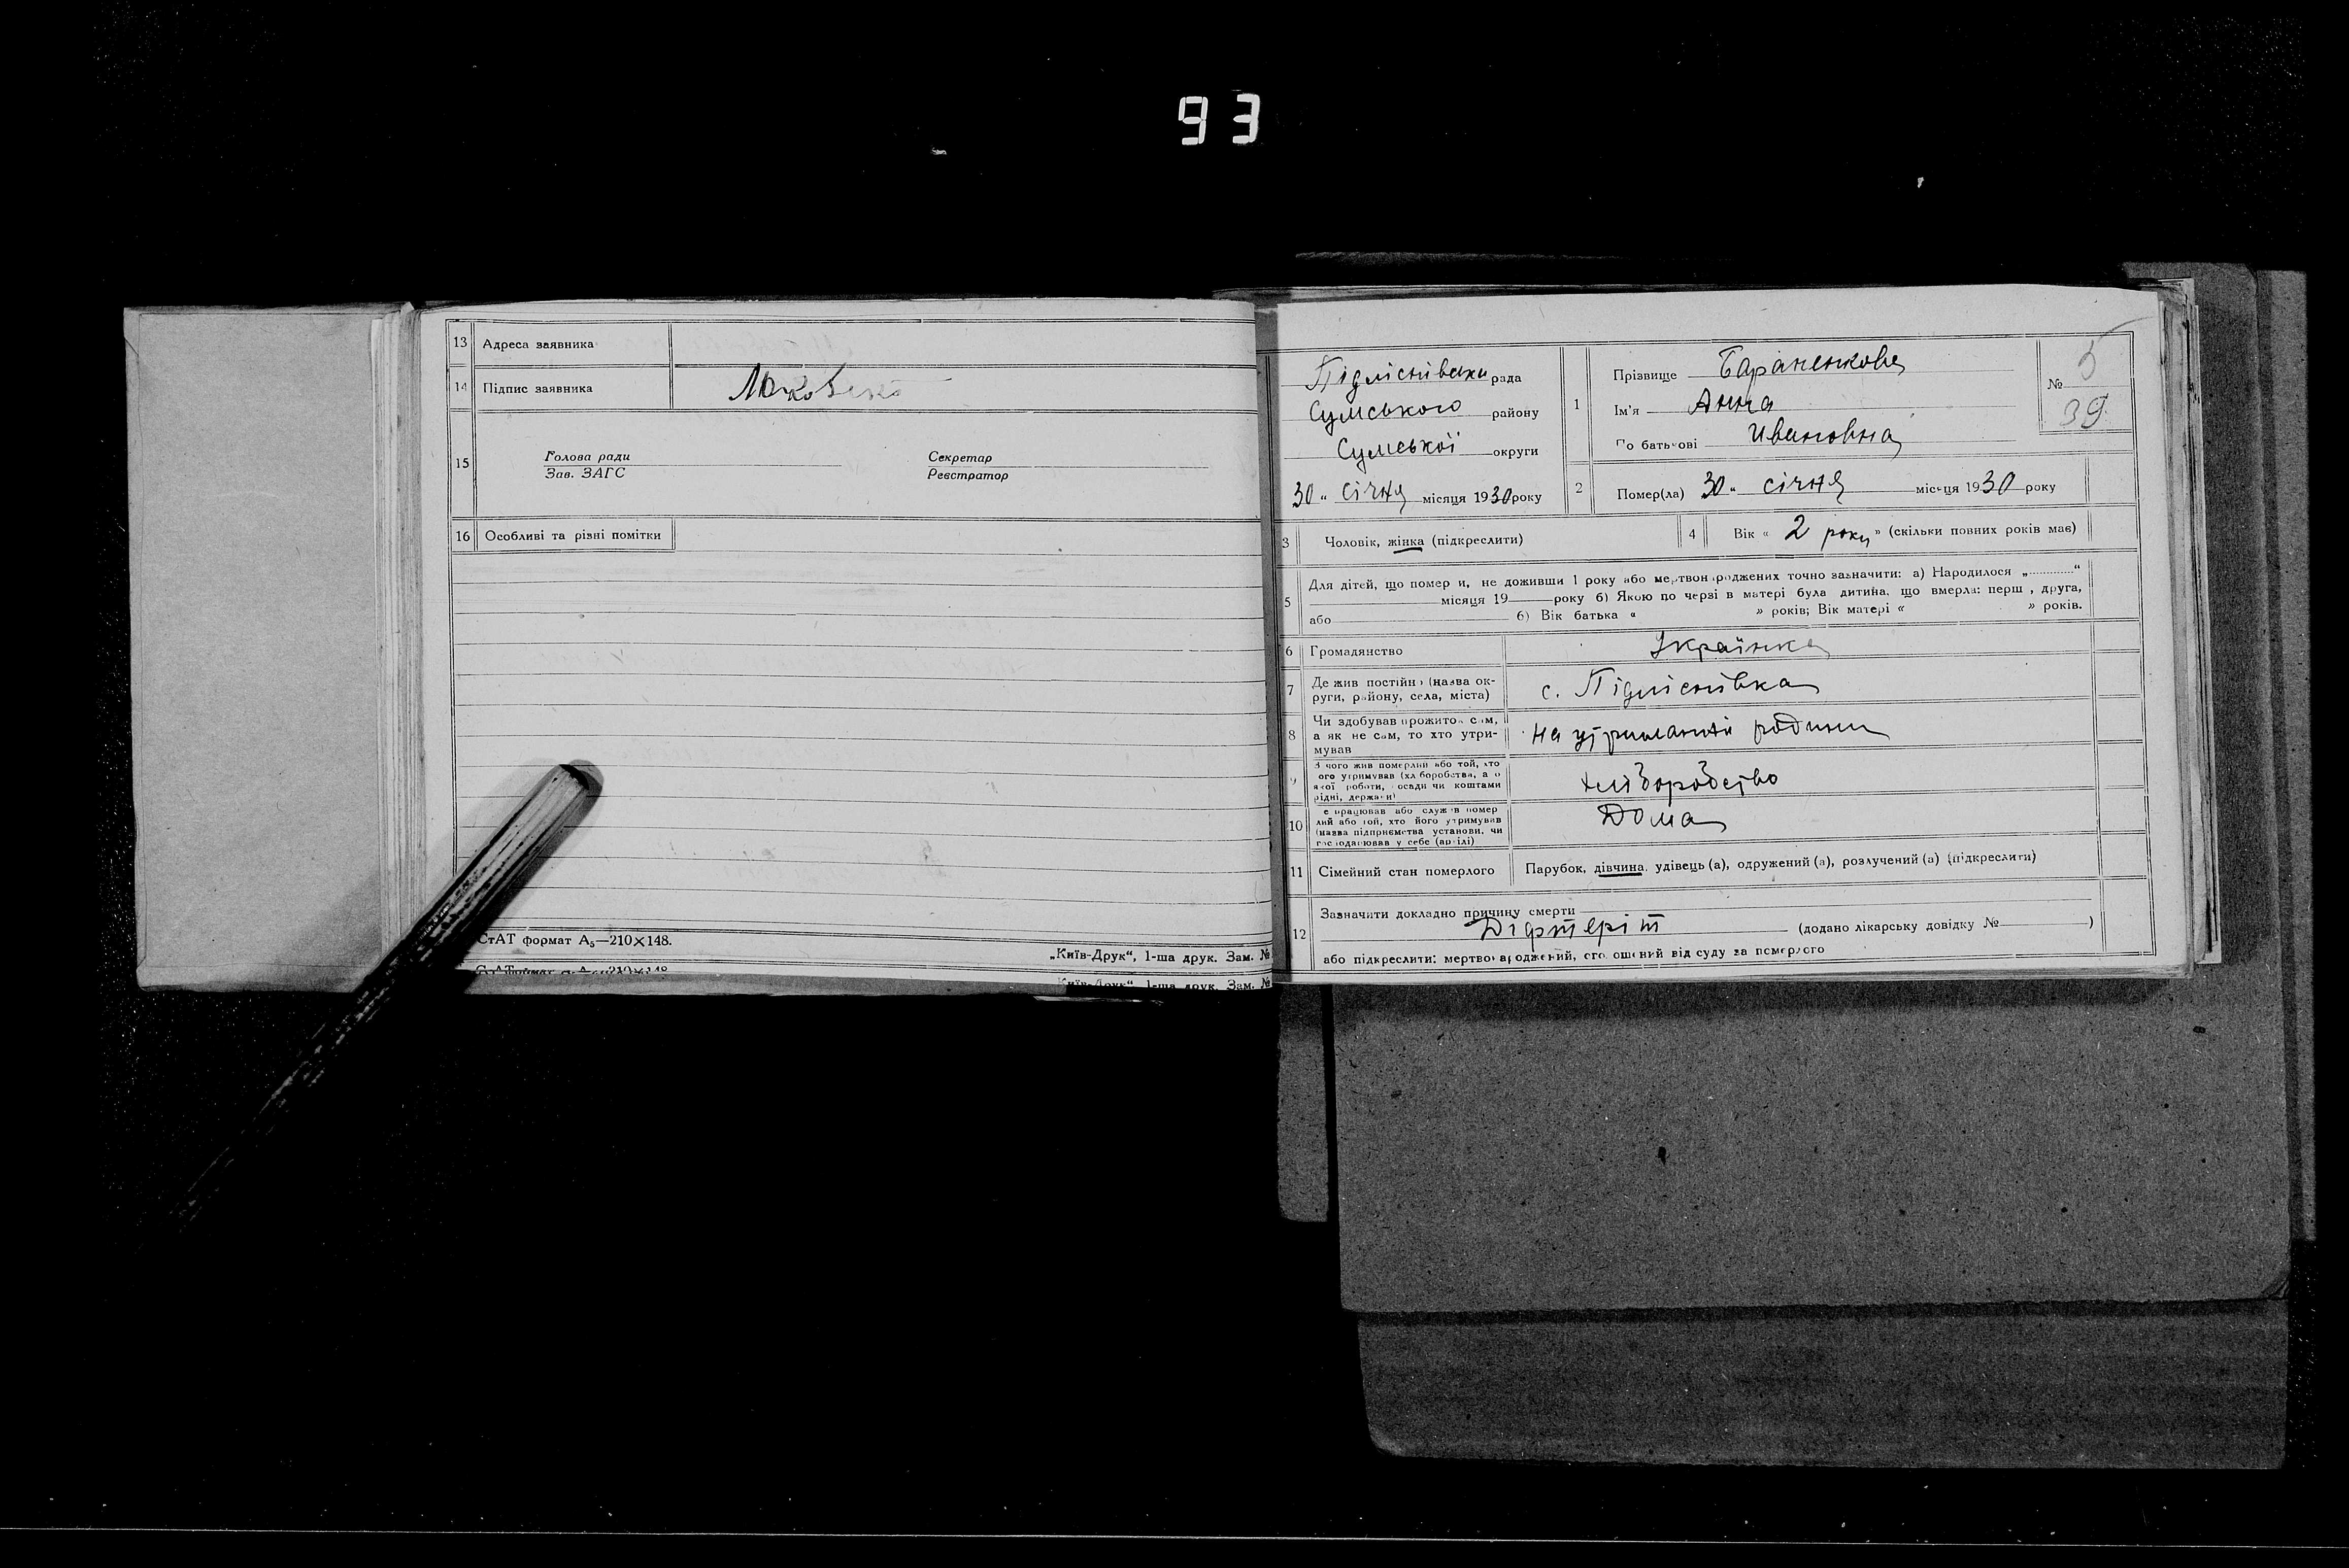 93
13 Адреса заявника
14 Підпис заявника
15 Голова ради Секретар
Зав. ЗАГС Реєстратор
16 Особливі та різні помітки
СтАТ формат А₅—210×148.
„Київ-Друк“, 1-ша друк. Зам. №
„Київ-Друк“, 1-ша друк. Зам. №
Підліснівки рада
Сумського району
Сумської округи
30 „ січня місяця 1930 року
1 Прізвище Бараненкова
Ім'я Анна
По батькові Ивановна
№ 5
39
2 Помер(ла) 30 „ січня місяця 1930 року
3 Чоловік, жінка (підкреслити)
4 Вік « 2 роки » (скільки повних років має)
5 Для дітей, що помер и, не доживши 1 року або мертвонароджених точно зазначити: а) Народилося „............“
місяця 19 року б) Якою по черзі в матері була дитина, що вмерла: перш , друга,
або б) Вік батька « » років; Вік матері « » років.
6 Громадянство Українка
7 Де жив постійно (назва ок-
руги, району, села, міста) с. Підліснівка
8 Чи здобував прожиток сам,
а як не сам, то хто утри-
мував на утриманні родини
9 З чого жив померлий або той, хто
його утримував (хліборобства, а о
якої роботи, посади чи коштами
рідні, держави) хліборобство
10 е працював або служив помер
лий або той, хто його утримував
(назва підприємства установи, чи
господарював у себе (артілі) Дома
11 Сімейний стан померлого Парубок, дівчина, удівець (а), одружений (а), розлучений (а) (підкреслити)
12 Зазначити докладно причину смерти
Діфтеріт (додано лікарську довідку № )
або підкреслити: мертвонароджений, оголошений від суду за померлого